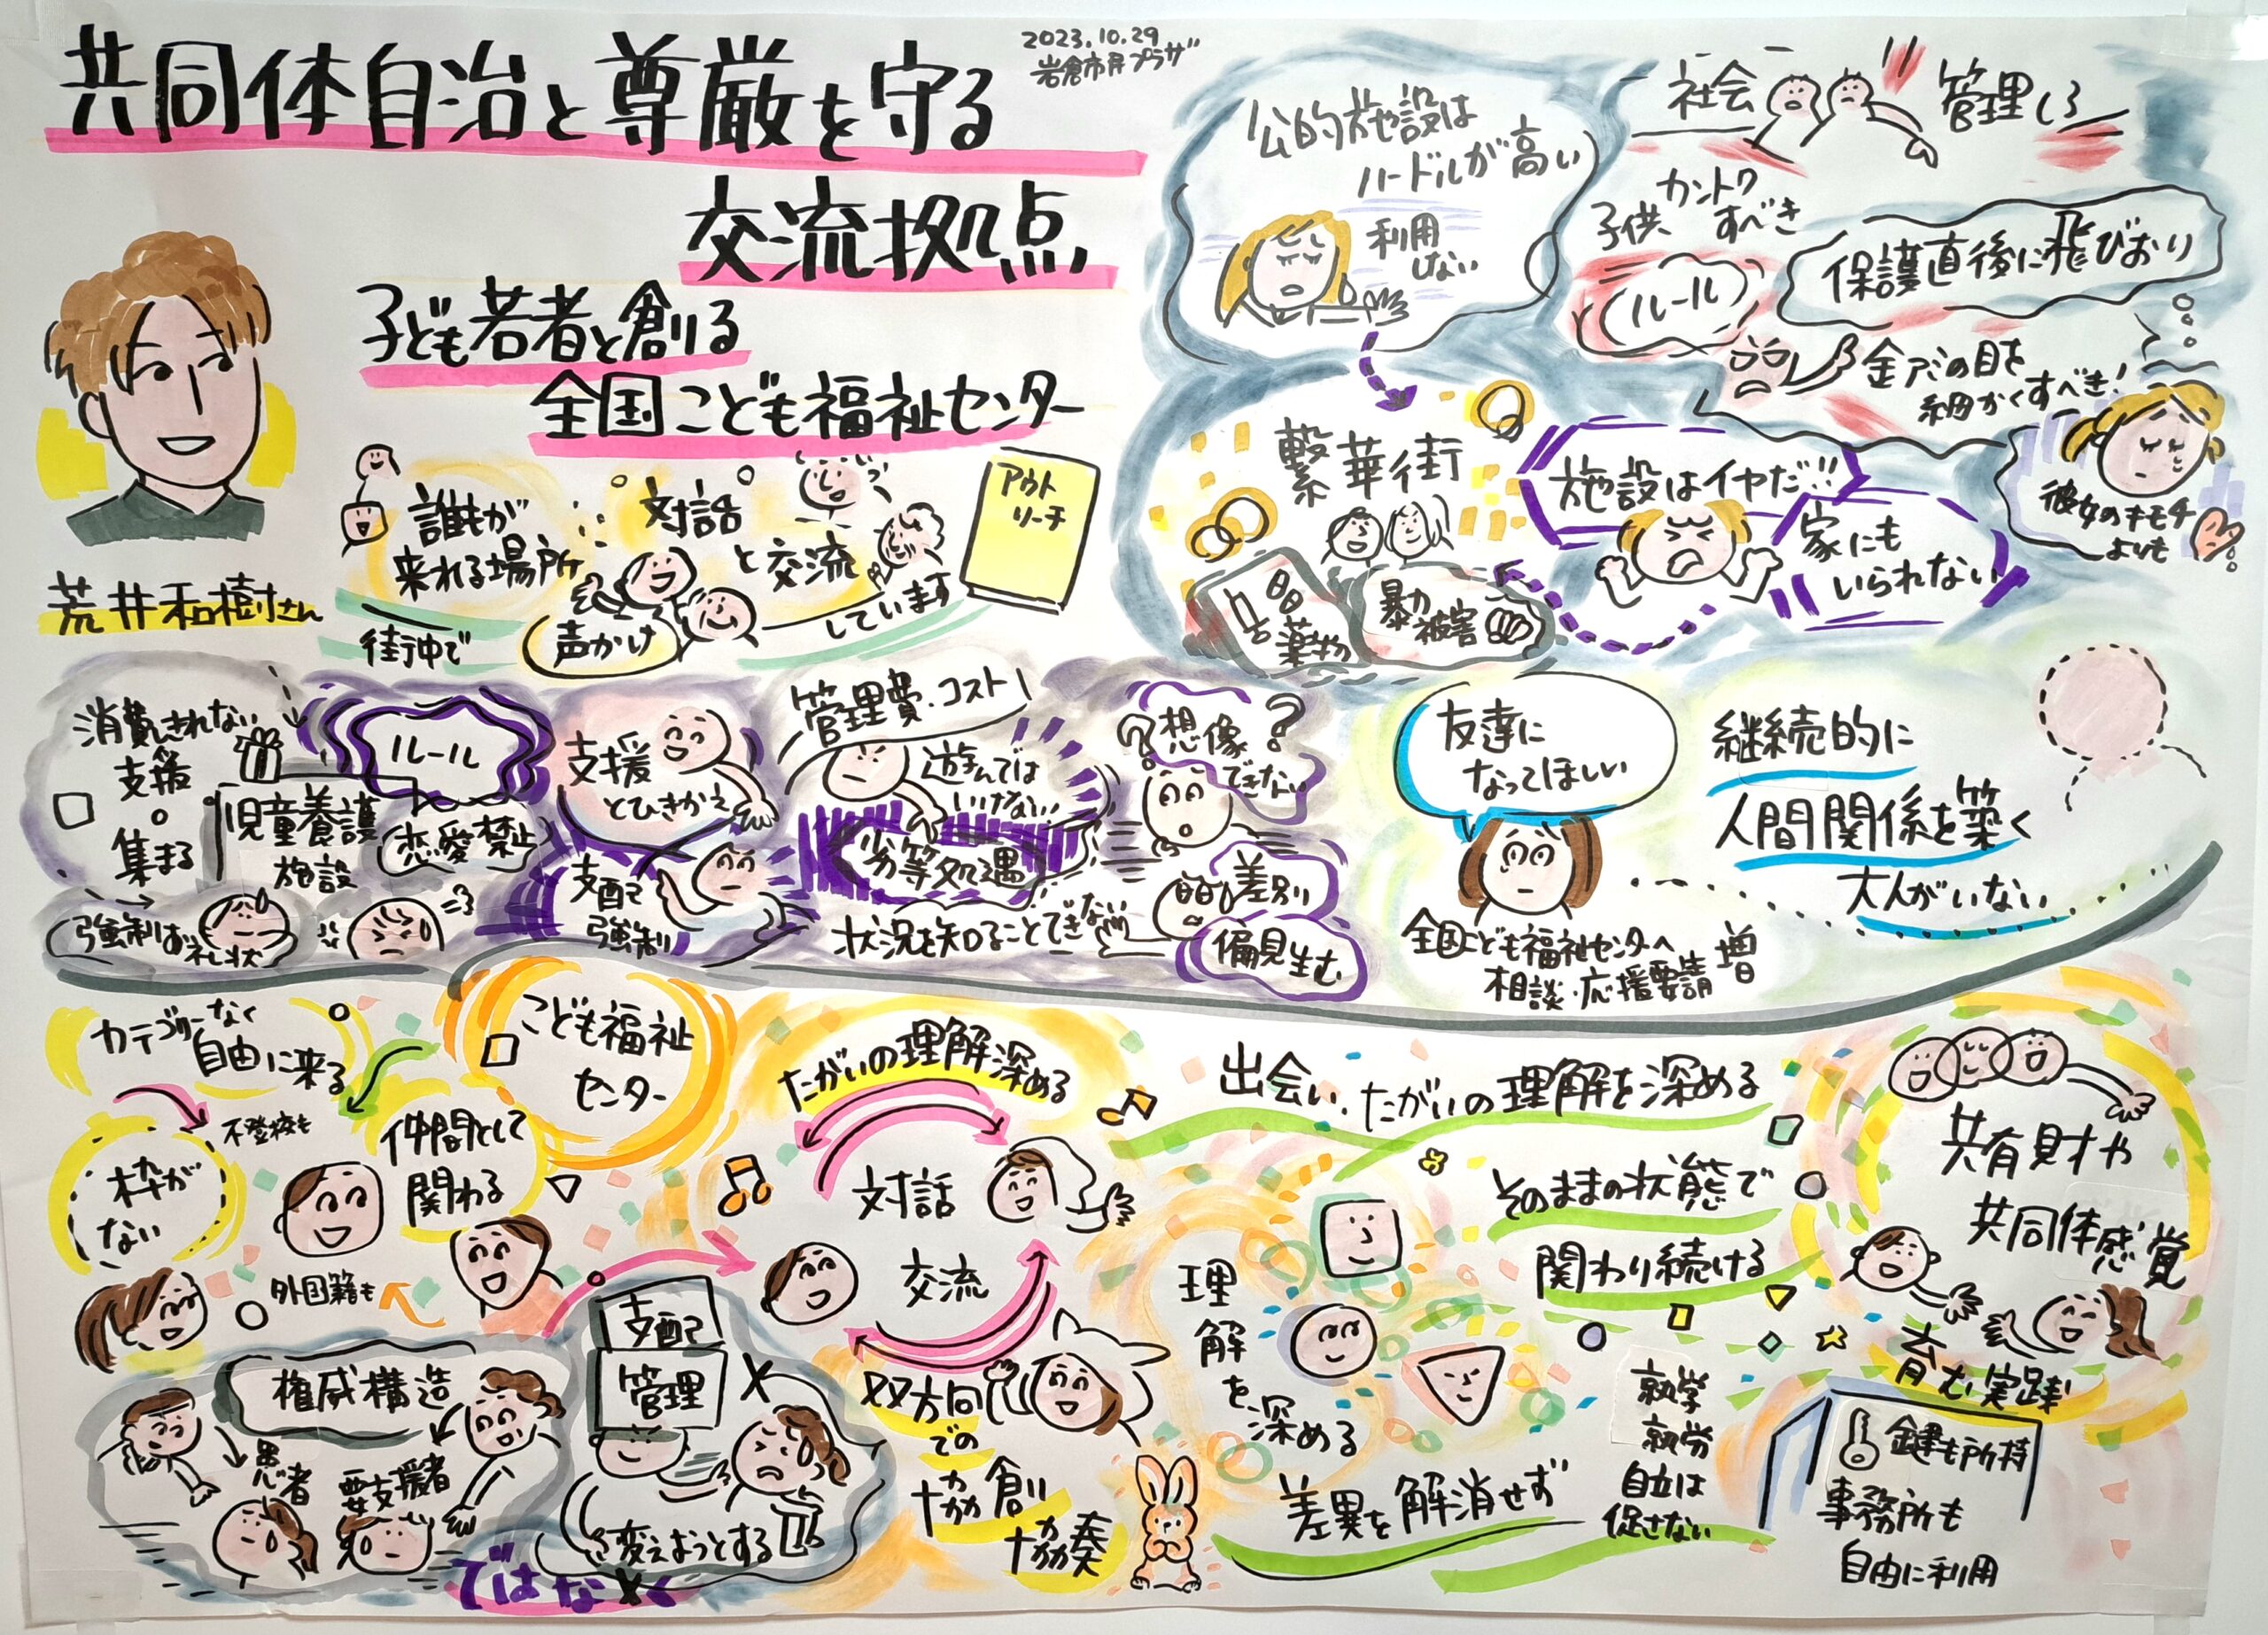 共同体自治と尊厳を守る
交流拠点
2023.10.29
岩倉市民プラザ
子ども若者と創る
全国こども福祉センター
荒井和樹さん
誰もが
来れる場所
対話
と交流
しています
街中で
声かけ
アウト
リーチ
公的施設は
ハードルが高い
利用
しない
社会
管理しろ
子供
カントク
すべき
ルール
保護直後に飛びおり
金アミの目を
細かくすべき!
彼女のキモチ
よりも
繋華街
薬物
暴力
被害
施設はイヤだ!!
家にも
いられない
消費しきれない
支援
集まる
児童養護
施設
ルール
恋愛禁止
強制お礼状
支援
とひきかえ
支配
強制
管理費・コスト
遊んでは
いけない
劣等処遇
状況を知ることできない
想像
できない
差別
偏見生む
友達に
なってほしい
継続的に
人間関係を築く
大人がいない
全国こども福祉センターへ
相談・応援要請 増
カテゴリーなく
自由に来る
枠が
ない
不登校も
仲間として
関わる
外国籍も
こども福祉
センター
たがいの理解深める
対話
交流
双方向
での
協創
協奏
権威構造
患者
要支援者
支配
管理
変えようとする
ではなく
出会い、たがいの理解を深める
そのままの状態で
関わり続ける
理解を深める
差異を解消せず
就学
就労
自立は
促さない
共有財や
共同体感覚
育む実践
鍵も所持
事務所も
自由に利用